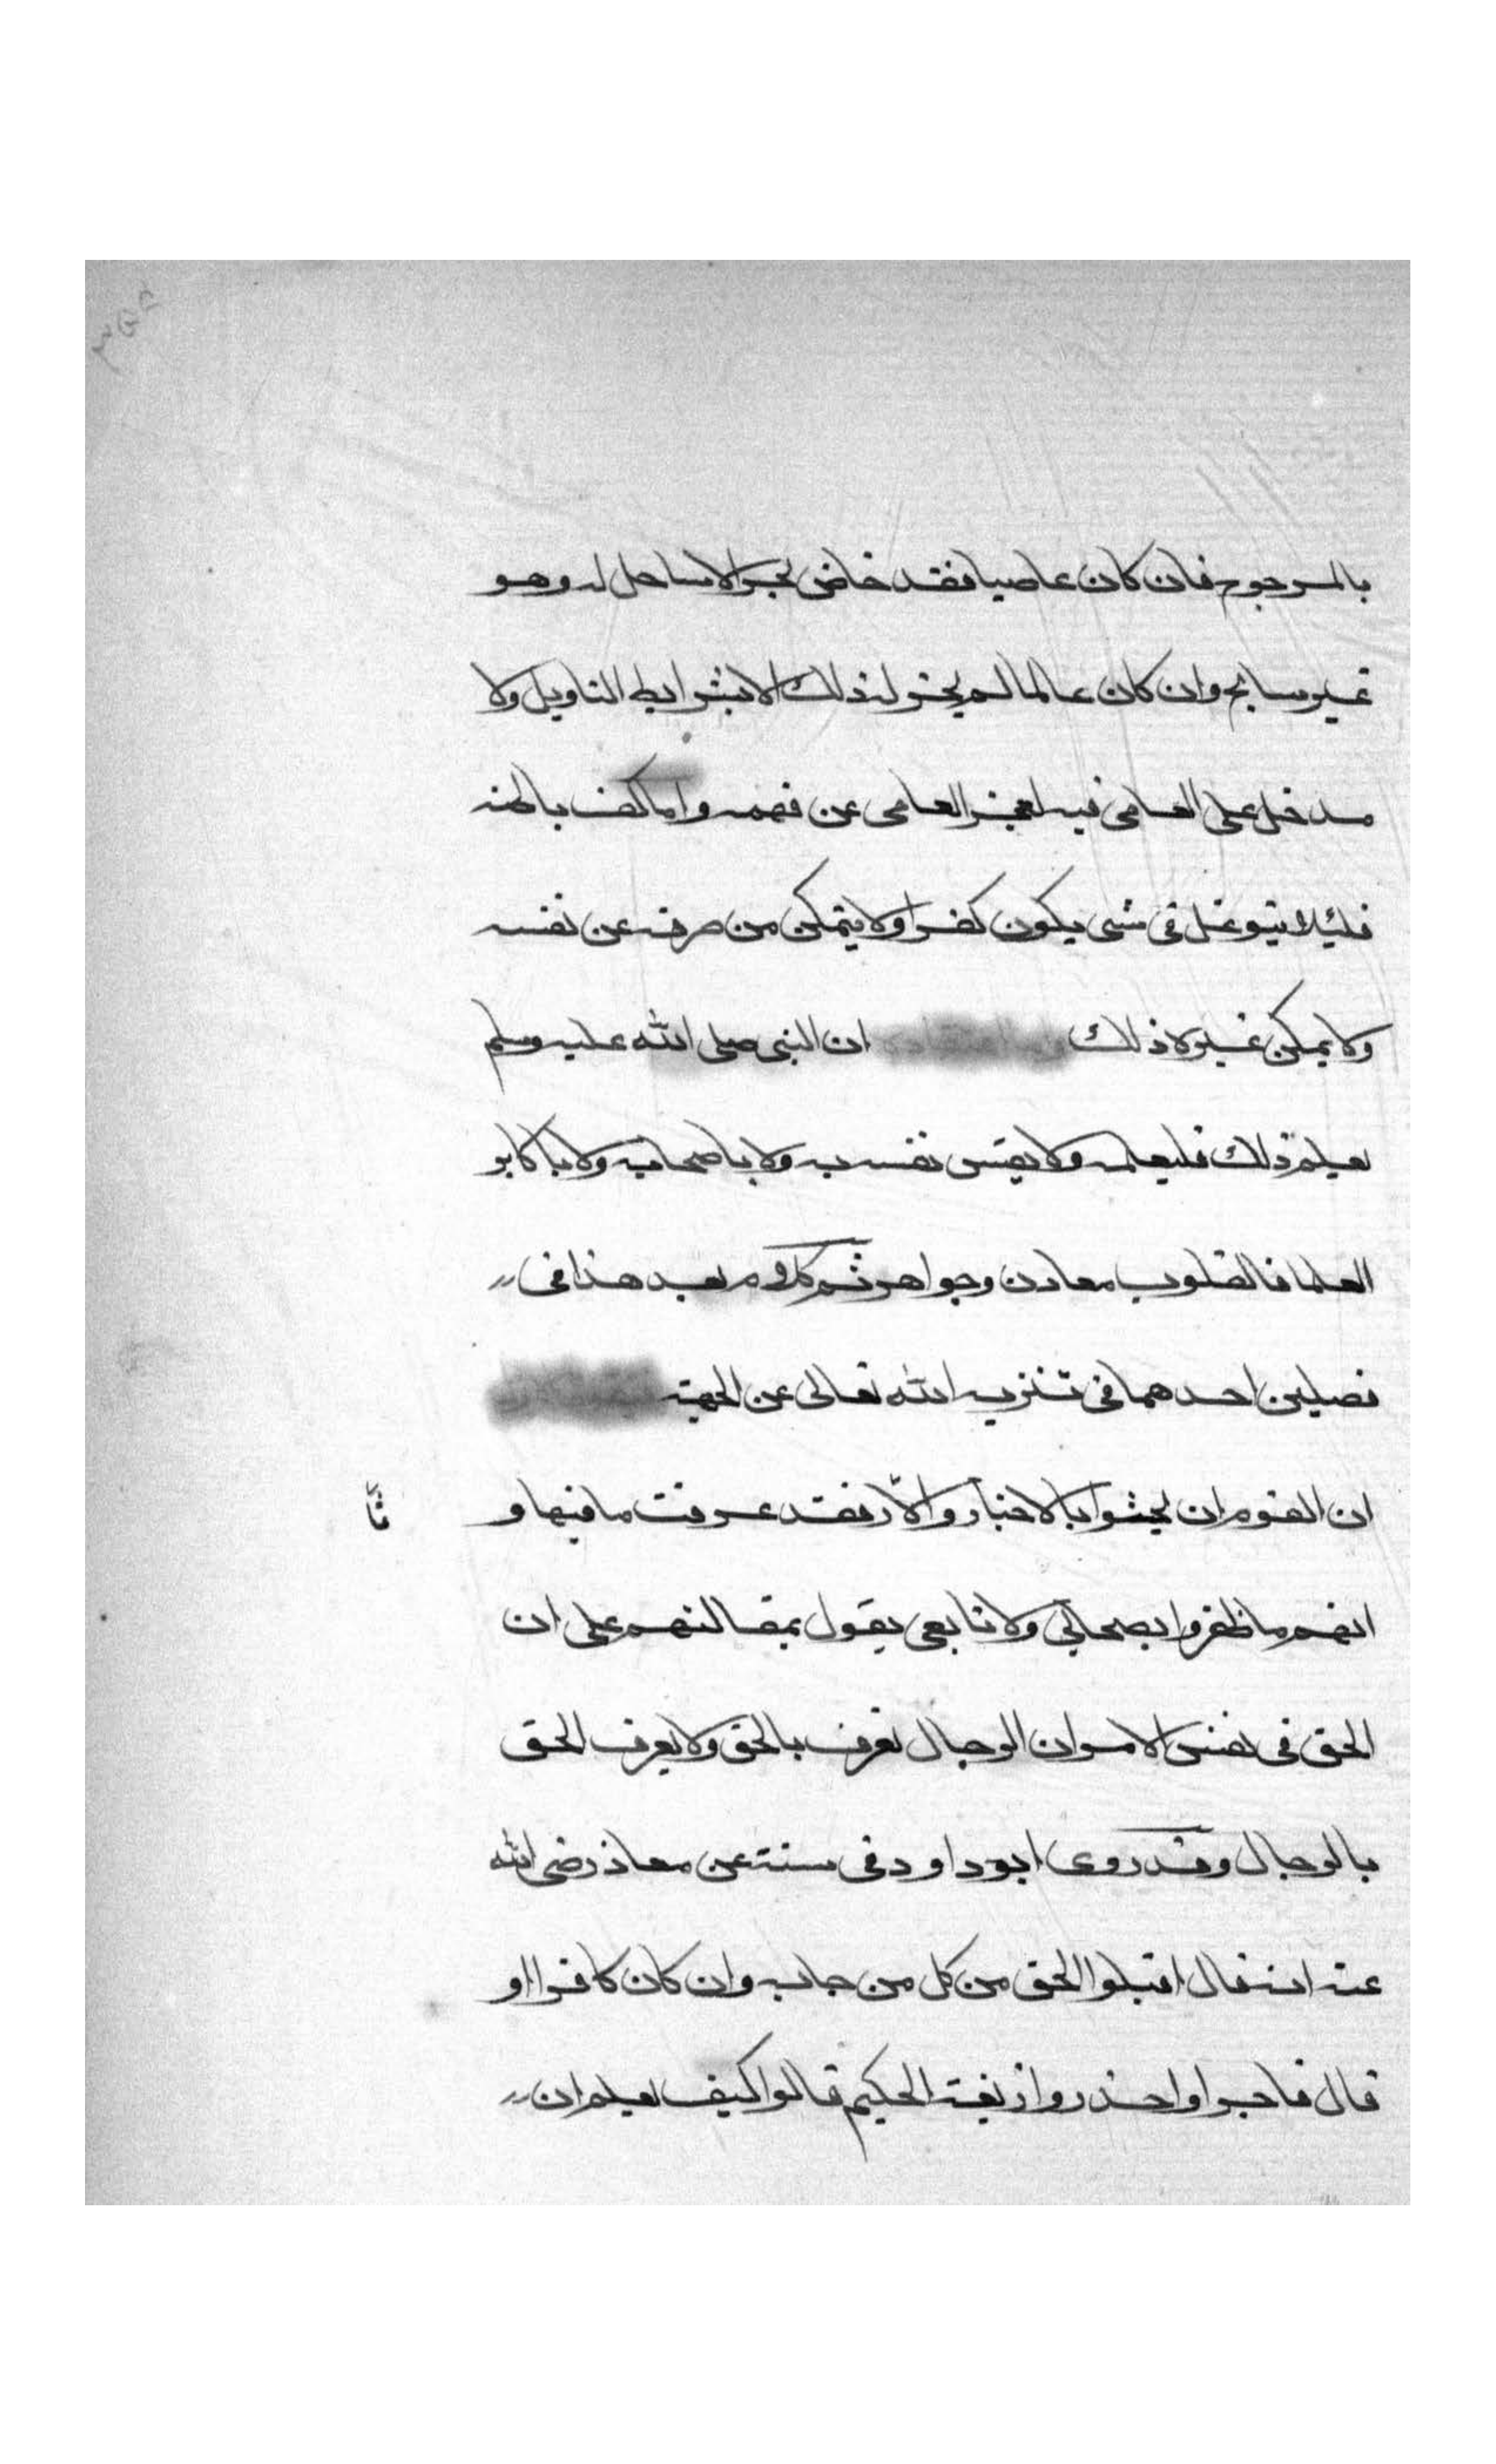 بالمرجوح فان كان عاصيا فقد خاض بحر الا ساحل له وهو
غير سابح وان كان عالما لم يجز له ذلك الا بشرايط التاويل ولا
يدخل على العامى فيه لعجز العامى عن فهمه واما كف باطنه
فليلا يتوغل فى شى يكون كفرا ولا يتمكن من صرفه عن نفسه
ولا يمكن غيره ذلك واما اعتقاده ان النبى صلى الله عليه وسلم
يعلم ذلك فليعلمه ولا يقس نفسه به ولا باصحابه ولا باكابر
العلما فالقلوب معادن وجواهر ثم كلامهم بعد هذا فى
فصلين احدهما فى تنزيه الله تعالى عن الجهة
ان القوم ان بحثوا بالاخبار والاثار فقد عرفت ما فيها و
ثا
انهم ما ظفروا بصحابي ولا تابعى يقول بمقالتهم على ان
الحق فى نفس الامر ان الرجال تعرف بالحق ولا يعرف الحق
بالرجال وقد روى ابو داود فى سننه عن معاذ رضى الله
عنه انه قال اقبلوا الحق من كل من جا به وان كان كافرا او
قال فاجرا واحذروا زيغة الحكيم قالوا كيف نعلم ان